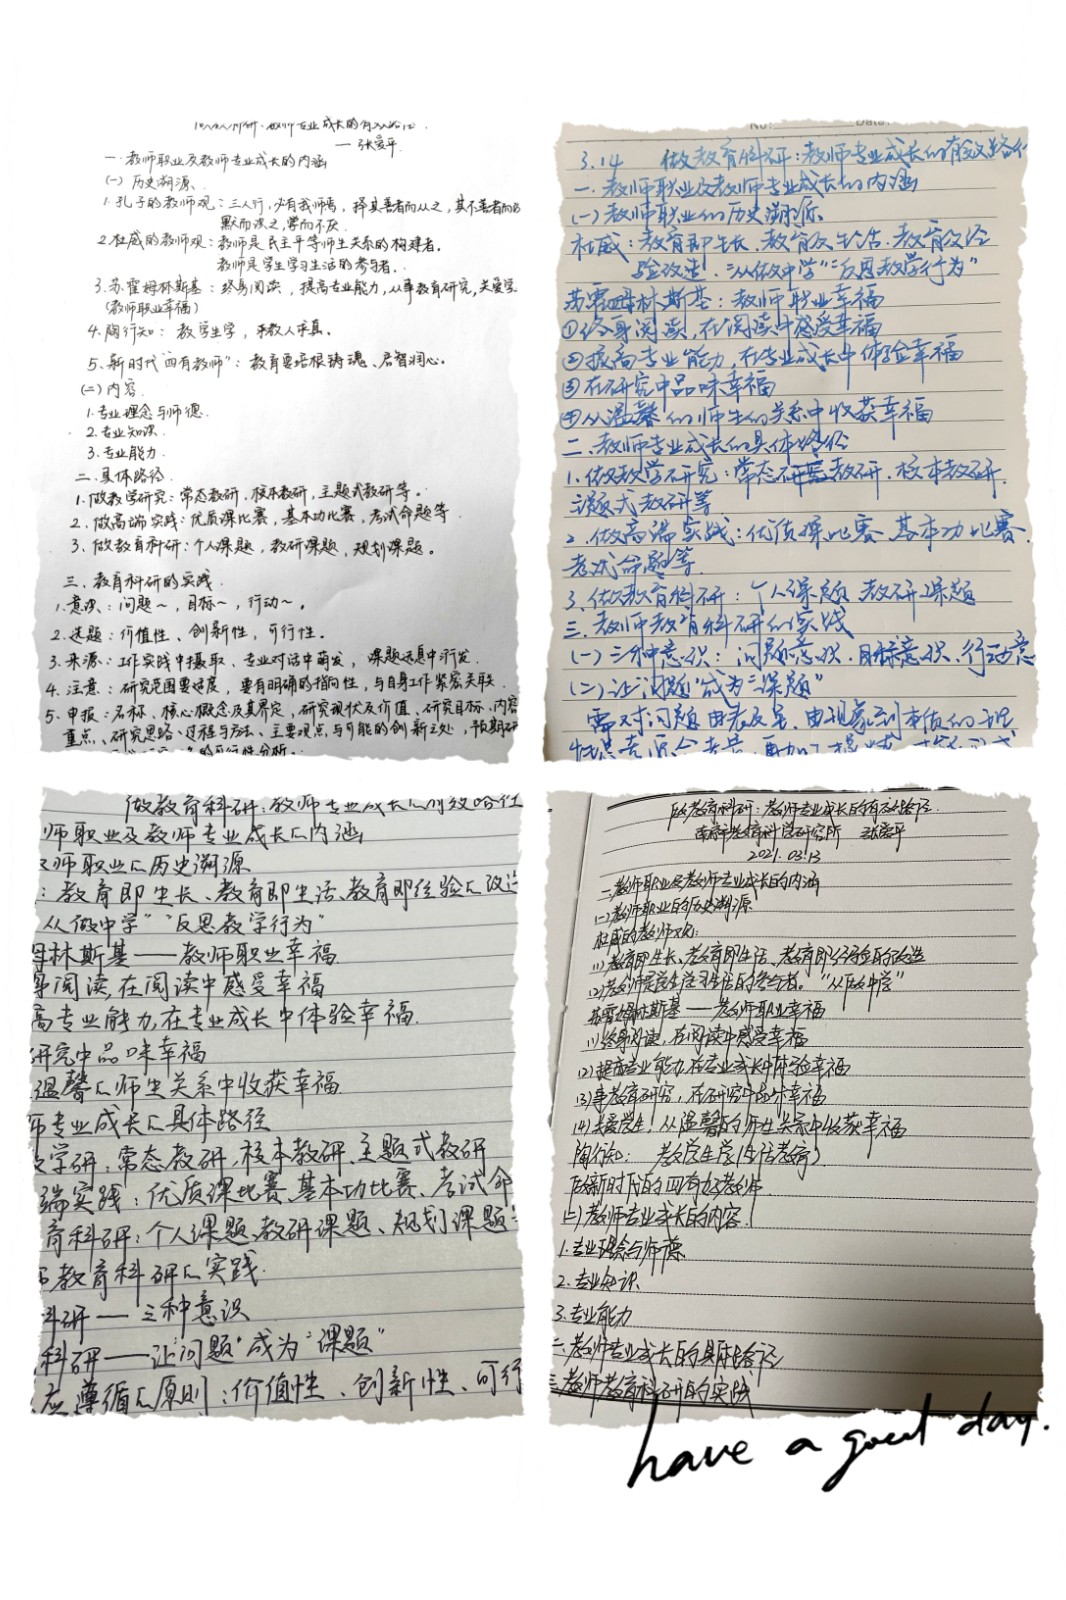 教师专业成长的有效路径
—张爱平
一. 教师职业及教师专业成长的内涵
(一) 历史溯源、
1. 孔子的教师观：三人行，必有我师焉，择其善者而从之，其不善者而改
默而识之，学而不厌.
2. 杜威的教师观：教师是民主平等师生关系的构建者。
教师是学生学习生活的参与者。
3. 苏霍姆林斯基：终身阅读，提高专业能力，从事教育研究，关爱学
(教师职业幸福)
4. 陶行知：教学生学，教人求真。
5. 新时代"四有教师"：教育要培根铸魂、启智润心。
(二) 内容
1. 专业理念与师德.
2. 专业知识.
3. 专业能力.
二. 具体路径
1. 做教学研究：常态教研，校本教研，主题式教研等。
2. 做高端实践：优质课比赛，基本功比赛，考试命题等.
3. 做教育科研：个人课题，教研课题，规划课题。
三. 教育科研的实践
1. 意识：问题～，目标～，行动～。
2. 选题：价值性、创新性，可行性。
3. 来源：工作实践中摄取、专业对话中萌发，课题信息中衍发.
4. 注意：研究范围要适度，要有明确的指向性，与自身工作紧密关联
5. 申报：名称、核心概念及其界定，研究现状及价值、研究目标、内容
重点、研究思路、过程与方法、主要观点与可能的创新之处，预期研
的可行性分析。
No: Date:
3.14 做教育科研：教师专业成长的有效路径
一. 教师职业及教师专业成长的内涵
(一) 教师职业的历史溯源
杜威：教育即生长、教育及生活、教育及经
验改造. "从做中学" "反思教学行为"
苏霍姆林斯基：教师职业幸福
①终身阅读，在阅读中感受幸福
②提高专业能力，在专业成长中体验幸福
③在研究中品味幸福
④从温馨的师生的关系中收获幸福
二. 教师专业成长的具体路径
1. 做教学研究：常态教研、校本教研、
主题式教研等
2. 做高端实战：优质课比赛、基本功比赛、
考试命题等
3. 做教育科研：个人课题、教研课题
三. 教师教育科研的实践
(一) 三种意识：问题意识、目标意识、行动意
(二) 让"问题"成为"课题"
需对问题由表及里、由现象到本质的
做教育科研：教师专业成长的有效路径
师职业及教师专业成长的内涵
师职业的历史溯源
：教育即生长、教育即生活、教育即经验的改造
从做中学" "反思教学行为"
林斯基——教师职业幸福
阅读，在阅读中感受幸福
高专业能力，在专业成长中体验幸福.
研究中品味幸福
温馨的师生关系中收获幸福
师专业成长的具体路径
学研：常态教研，校本教研、主题式教研
端实践：优质课比赛、基本功比赛、考试命
育科研：个人课题、教研课题、规划课题
教育科研的实践.
科研——三种意识
科研——让"问题"成为"课题"
应遵循的原则：价值性、创新性、可行
做教育科研：教师专业成长的有效路径
南京市教育科学研究所 张爱平
2021.03.13
一. 教师职业及教师专业成长的内涵
(一) 教师职业的历史溯源
杜威的教师观：
(1) 教育即生长、教育即生活、教育即经验的改造
(2) 教师是学生学习生活的参与者。"从做中学"
苏霍姆林斯基——教师职业幸福
(1) 终身阅读，在阅读中感受幸福
(2) 提高专业能力，在专业成长中体验幸福
(3) 事教育研究，在研究中品味幸福
(4) 关爱学生！从温馨的师生关系中收获幸福
陶行知：教学生学(生活教育)
做新时代的四有好教师
(二) 教师专业成长的内容
1. 专业理念与师德
2. 专业知识
3. 专业能力
二. 教师专业成长的具体路径
三. 教师教育科研的实践
have a good day.